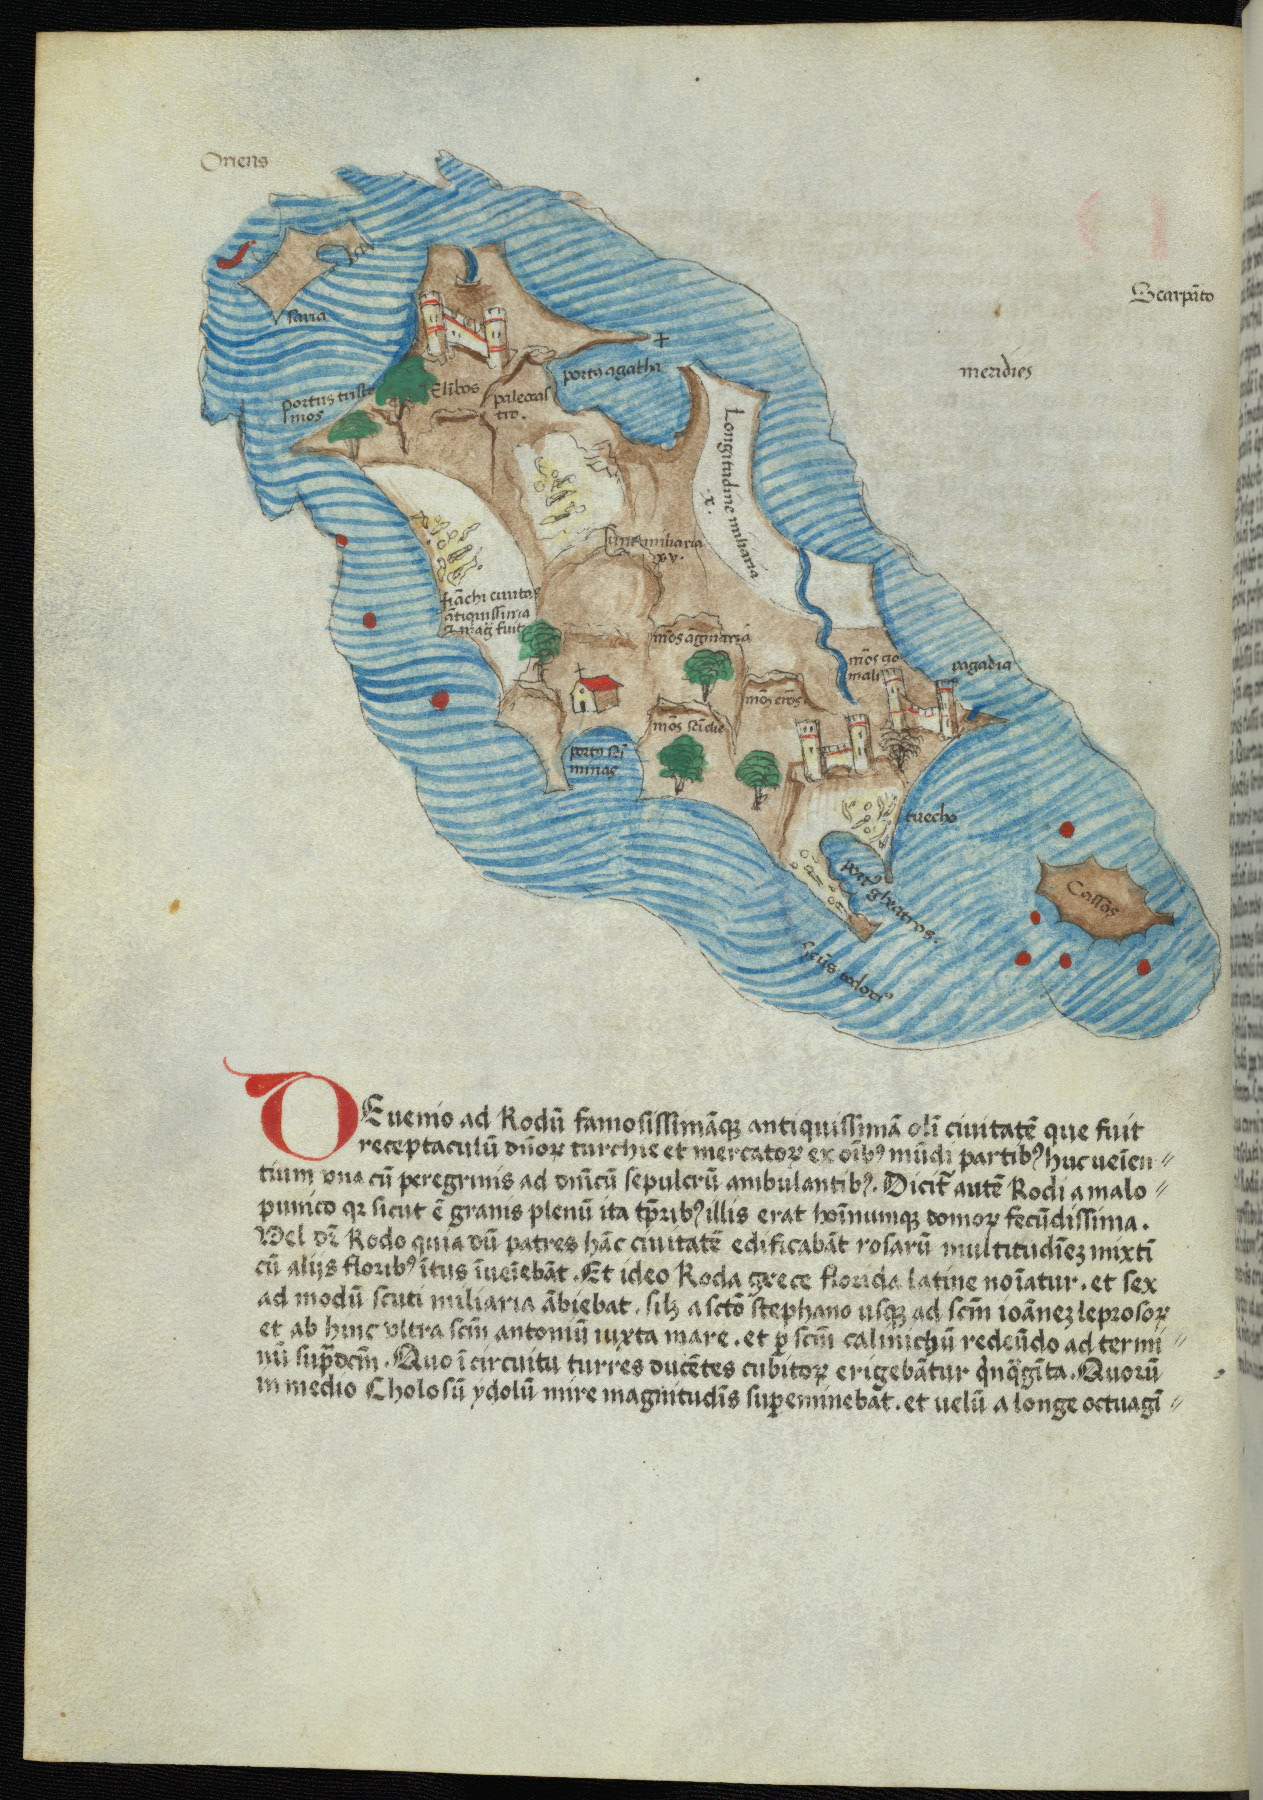 Oriens
Scarpāto
meridies
saria
portus tristo
mos
Elibos
palecas
tro.
portꝰ agatha
Longitudine miliaria
.x.
sunt miliaria
xv.
fiāchi ciuitas
ātiquissima
fuit
mōs
mōs
mōs scī elie
mōs go
mali
pagadia
portꝰ scī
minas
tuecho
portꝰ
Cassos
DEuenio ad Rodū famosissimāqꝫ antiquissimā oli᷑ ciuitatē que fuit
receptaculū dn̄oꝝ turchie et mercatoꝝ ex oīb᷒ mūdi partib᷒ huc ueīen⸗
tium vna cū peregrinis ad dnīcū sepulcrū ambulantib᷒. Dicit᷑ autē Rodi a malo⸗
punico qꝛ sicut ē granis plenū ita tp̄rib᷒ illis erat hoīnumqꝫ domoꝝ fecūdissima.
Vel dꝛ̄ Rodo quia dū patres hāc ciuitatē edificabāt rosarū multitudīeꝫ mixtī
cū alijs florib᷒ ītus īueīebāt. Et ideo Roda grece florida latine noīatur. et sex
ad modū scuti miliaria ābiebat. silꝫ a scto᷑ stephano usqꝫ ad scm̄ ioāneꝫ leprosoꝝ
et ab hinc vltra scm̄ antoniū iuxta mare. et ꝑ scm̄ calinichū redeūdo ad termi⸗
nū sup̄dcm̄. Quo ī circuitu turres ducētes cubitoꝝ erigebātur q̇nq̄gīta. Quorū
in medio Cholosū ydolū mire magnitudīs suꝑeminebāt. et uelū a longe octuagī⸗